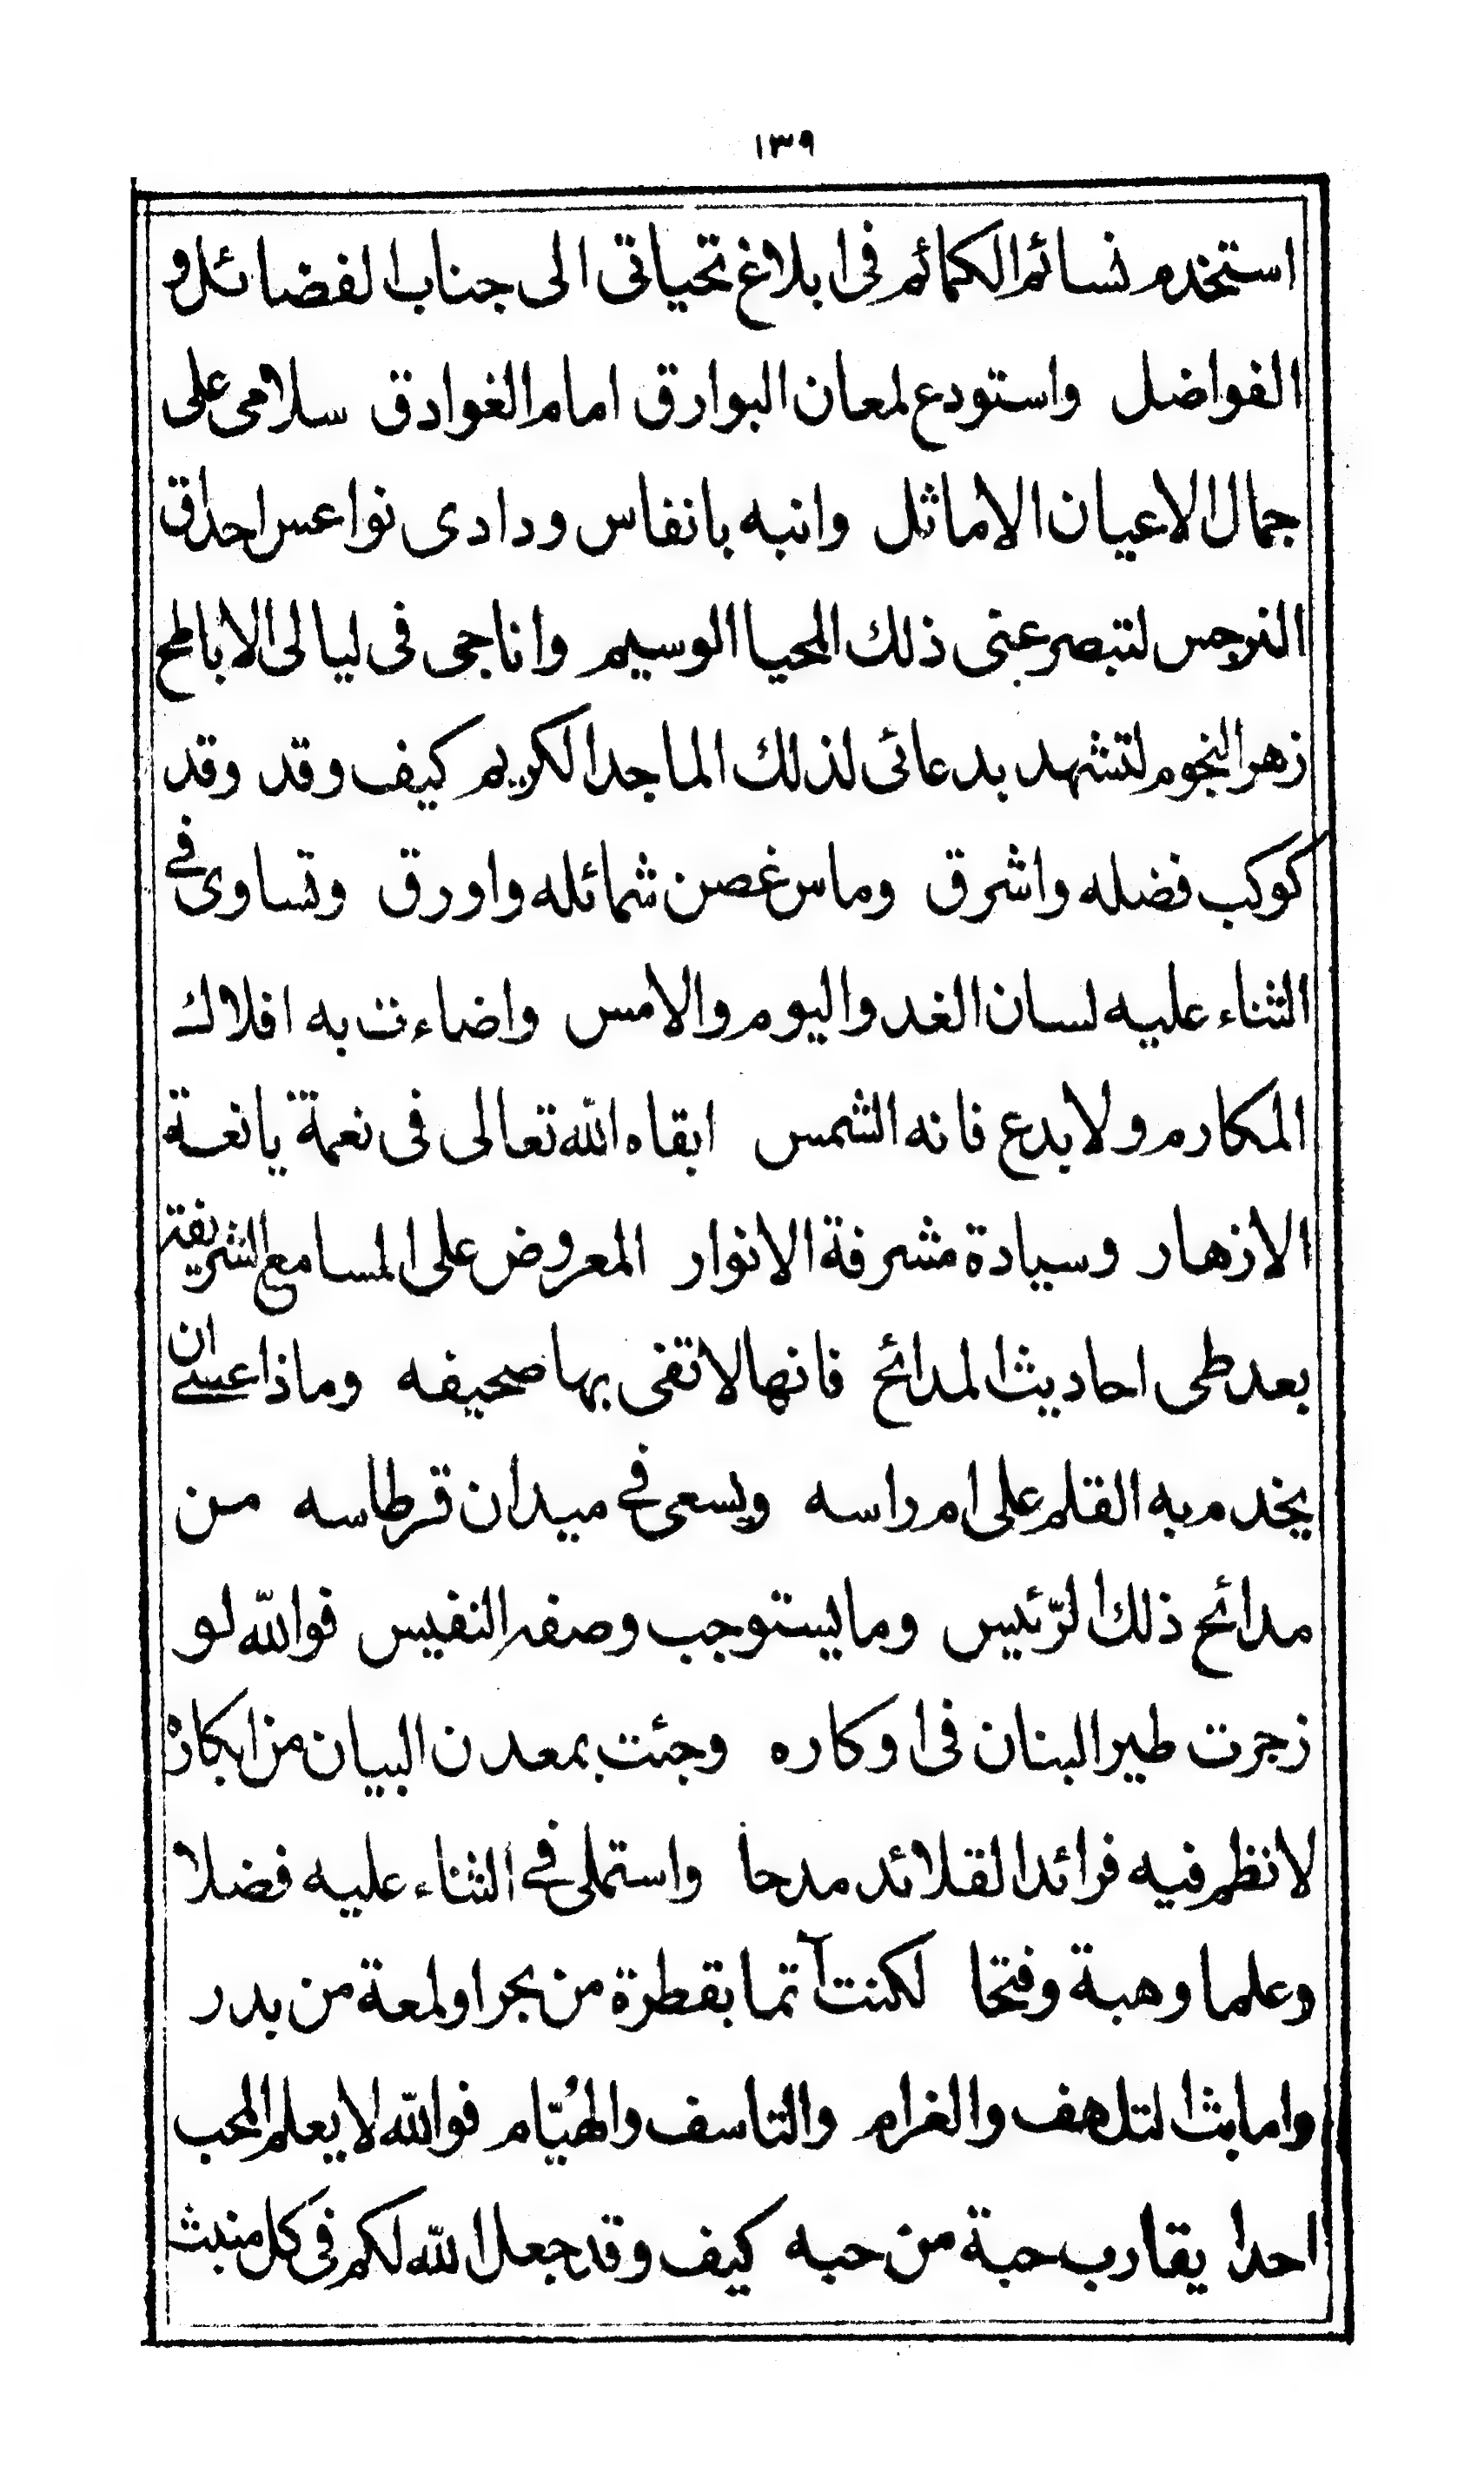 ١٣٩
استخدم نسائم الكمائم فى ابلاغ تحياتى الى جناب الفضائل و
الفواضل واستودع لمعان البوارق امام الغوادق سلامى على
جمال الاعيان الاماثل وانبه بانفاس ودادى نواعس احداق
النرجس لتبصر عنى ذلك المحيا الوسيم واناجى فى ليالى الاباطح
زهر النجوم لتشهد بدعائى لذلك الماجد الكريم كيف وقد وقد
كوكب فضله واشرق وماس غصن شمائله واورق وتساوى فى
الثناء عليه لسان الغد واليوم والامس واضاءت به افلاك
المكارم ولا بدع فانه الشمس ابقاه الله تعالى فى نعمة يانعة
الازهار وسيادة مشرفة الانوار المعروض على المسامع الشريفة
بعد طى احاديث المدائح فانها لا تفى بها صحيفه وماذا عسى ان
يخدم به القلم على ام راسه ويسعى فى ميدان قرطاسه من
مدائح ذلك الرّئيس وما يستوجب وصفه النفيس فوالله لو
زجرت طير البنان فى اوكاره وجئت بمعدن البيان من ابكاره
لانظم فيه فرائد القلائد مدحا واستملى فى الثناء عليه فضلا
وعلما وهبة وفتحا لكنت آتما بقطرة من بحر او لمعة من بدر
واما بث التلهف والغرام والتاسف والهُيّام فوالله لا يعلم المحب
احدا يقارب حبة من حبه كيف وقد جعل الله لكم فى كل منبث